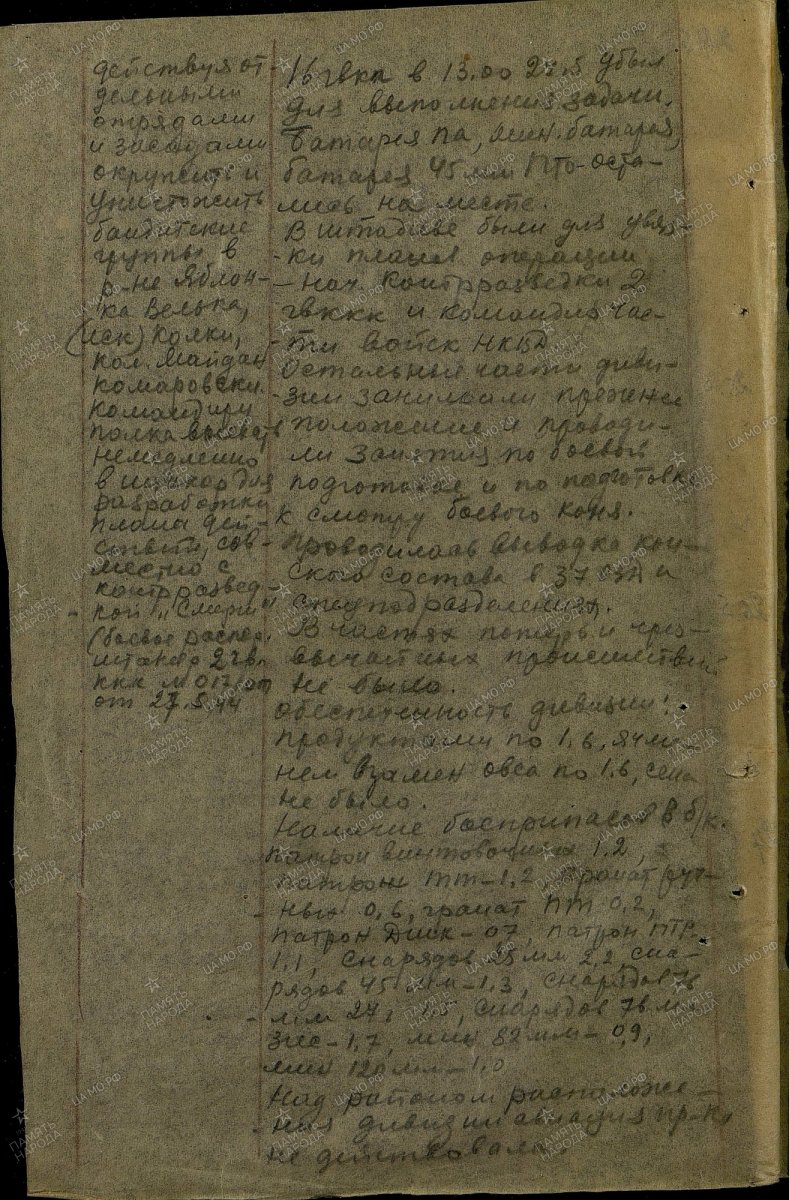 действуя от
дельными
отрядами
и засадами
окружить и
уничтожить
бандитские
группы в
р-не Яблон-
ка Велька,
(иск) Колки,
кол. Майдан
Комаровски.
Командиру
полка выехать
немедленно
в штакор для
разработки
плана дей-
ствий, сов-
местно с
контрразвед-
кой "Смерш"
(боевое распор.
штакор 2 гв.
ккк № 017/оп
от 27.5.44
16 гвкп в 13.00 27.5 убыл
для выполнения задачи.
Батарея ПА, мин. батарея,
батарея 45 мм ПТО-оста-
лись на месте.
В штадиве были для увяз-
ки планов операции
- Нач. Контрразведки 2
гвккк и командир час-
ти войск НКВД
Остальные части диви-
зии занимали прежнее
положение и проводи-
ли занятия по боевой
подготовке и по подготовке
к смотру боевого коня.
Проводилась выводка кон-
ского состава в 37 озд и
спецподразделениях.
В частях потерь и чрез-
вычайных происшествий
не было.
Обеспеченность дивизии:
продуктами по 1.6, ячме-
нем взамен овса по 1.6, сена
не было.
Наличие боеприпасов в б/к.
патрон винтовочных 1,2,
патрон ТТ-1,2, Гранат руч-
ных 0,6, гранат ПТ 0,2,
патрон Диск - 07, патрон ПТР
1,1, снарядов 25 мм 2,2 сна-
рядов 45 мм-1,3, снарядов 76
мм 27г 1.5, снарядов 76 мм
Зис-1,7, мин 82 мм-0,9,
мин 120 мм-1,0
Над районом расположе-
ния дивизии авиация пр-ка
не действовала.